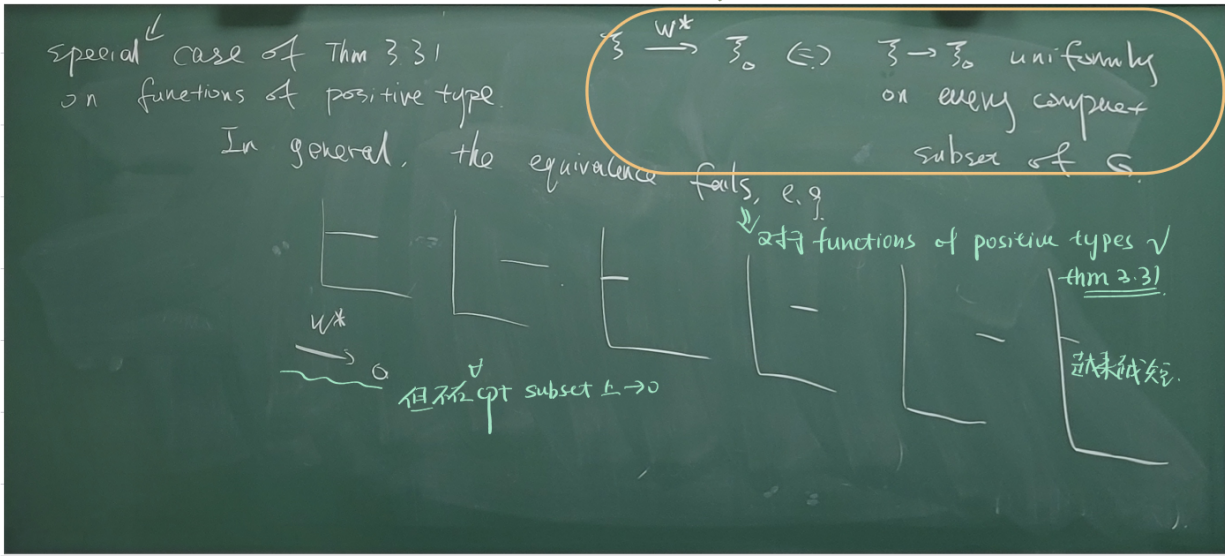 special case of Thm 3.31
on functions of positive type.
ξ —W*→ ξ₀ ⇔ ξ → ξ₀ uniformly
on every compact
subset of G.
In general, the equivalence fails, e.g.
对于 functions of positive types √
thm 3.31
W*
→ 0
但不在 ∀ cpt subset 上 → 0
越来越短.